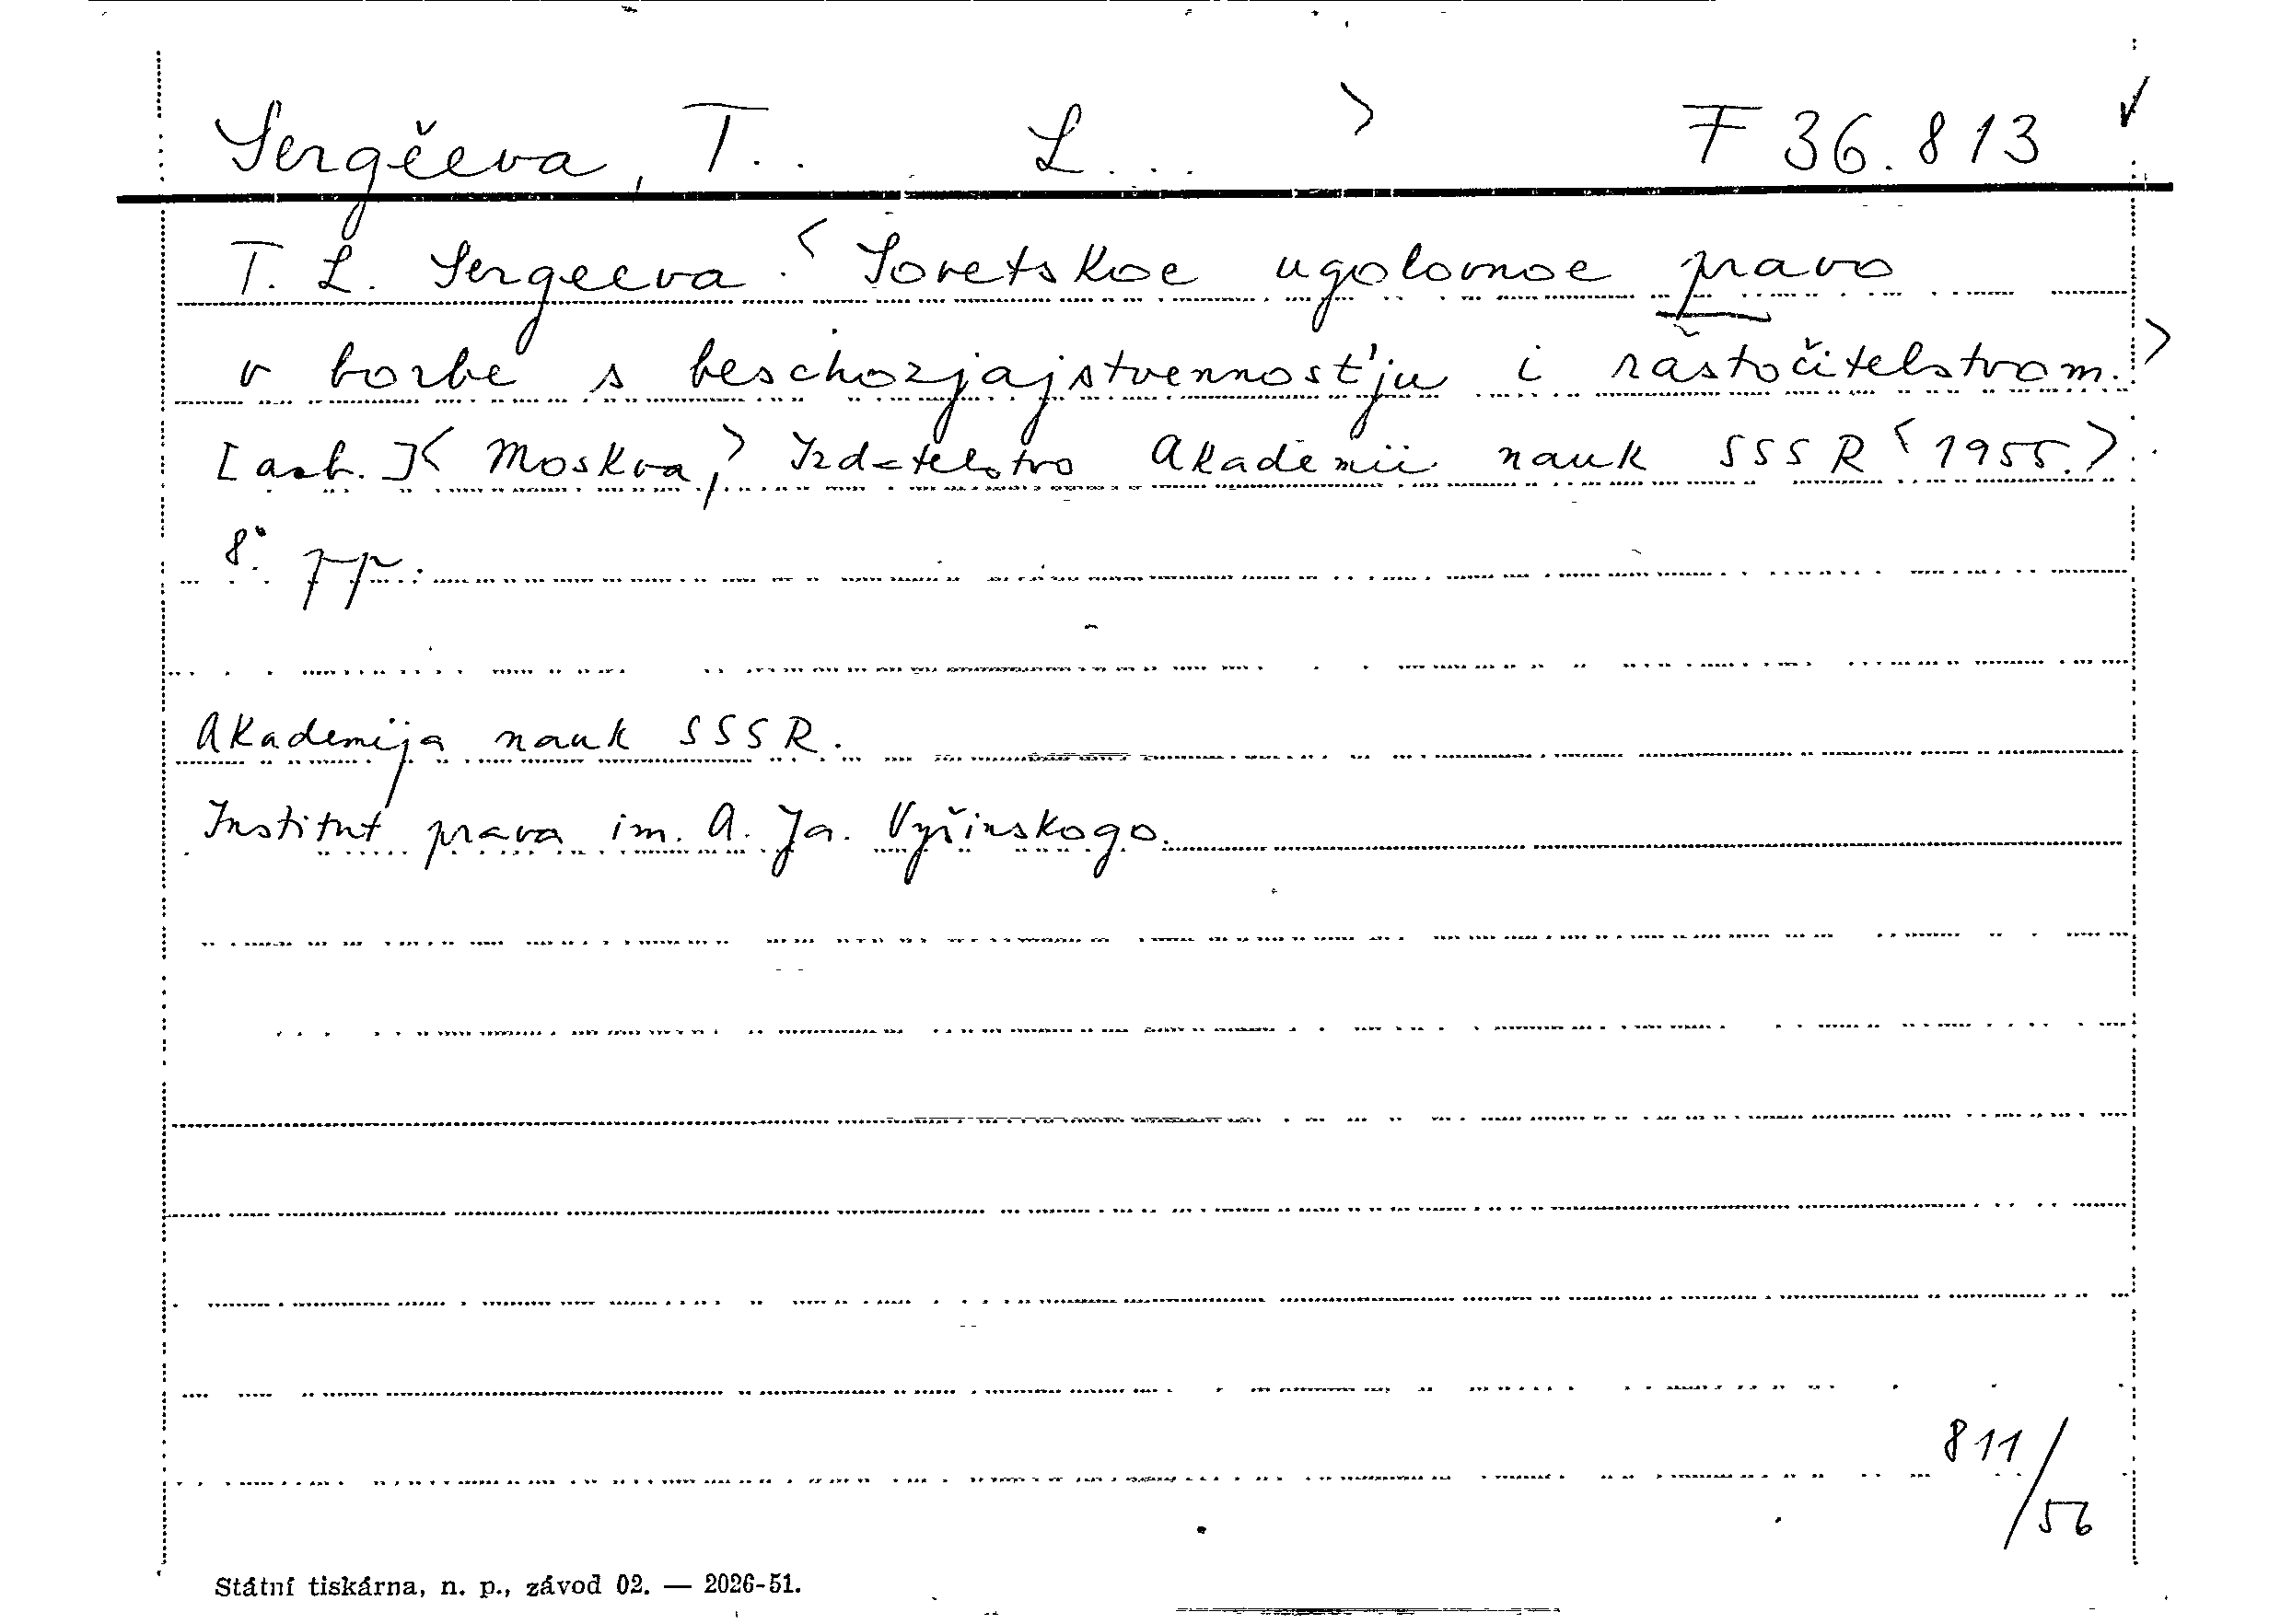 Sergěeva, T.. L... > F 36.813 ✓
T. L. Sergeeva. < Sovetskoe ugolovnoe pravo
v borbe s beschozjajstvennosťju i rastočitelstvom. >
[azb.] < Moskva, > Izdatelstvo Akademii nauk SSSR < 1955. >.
8°. pp.
Akademija nauk SSSR.
Institut prava im. A. Ja. Vyšinskogo.
811/56
Státní tiskárna, n. p., závod 02. — 2026-51.